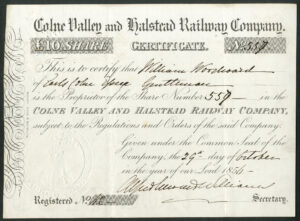 Colne Valley and Halstead Railway Company.
£10 SHARE CERTIFICATE. No. 559
This is to certify that William Woodward
of Earls Colne Essex Gentleman
is the Proprietor of the Share Number 559 in the
COLNE VALLEY AND HALSTEAD RAILWAY COMPANY,
subject to the Regulations and Orders of the said Company.
Given under the Common Seal of the
Company, the 29th day of October
in the year of our Lord 1856
Registered No.
Secretary.